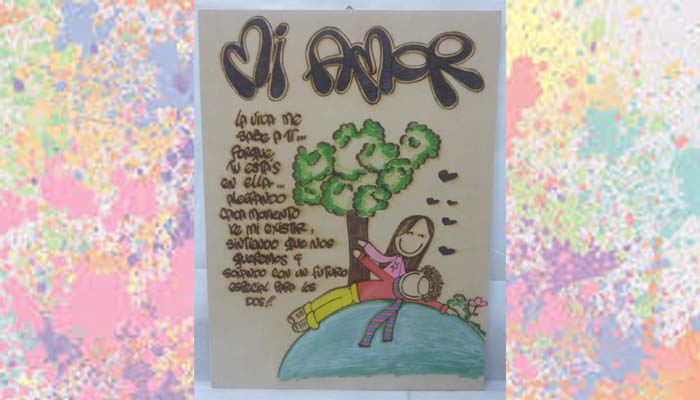 MI AMOR
LA VIDA ME
SABE A TI...
PORQUE
TU ESTAS
EN ELLA...
ALEGRANDO
CADA MOMENTO
DE MI EXISTIR,
SINTIENDO QUE NOS
QUEREMOS Y
SOÑANDO CON UN FUTURO
ESPECIAL PARA LOS
DOS!!